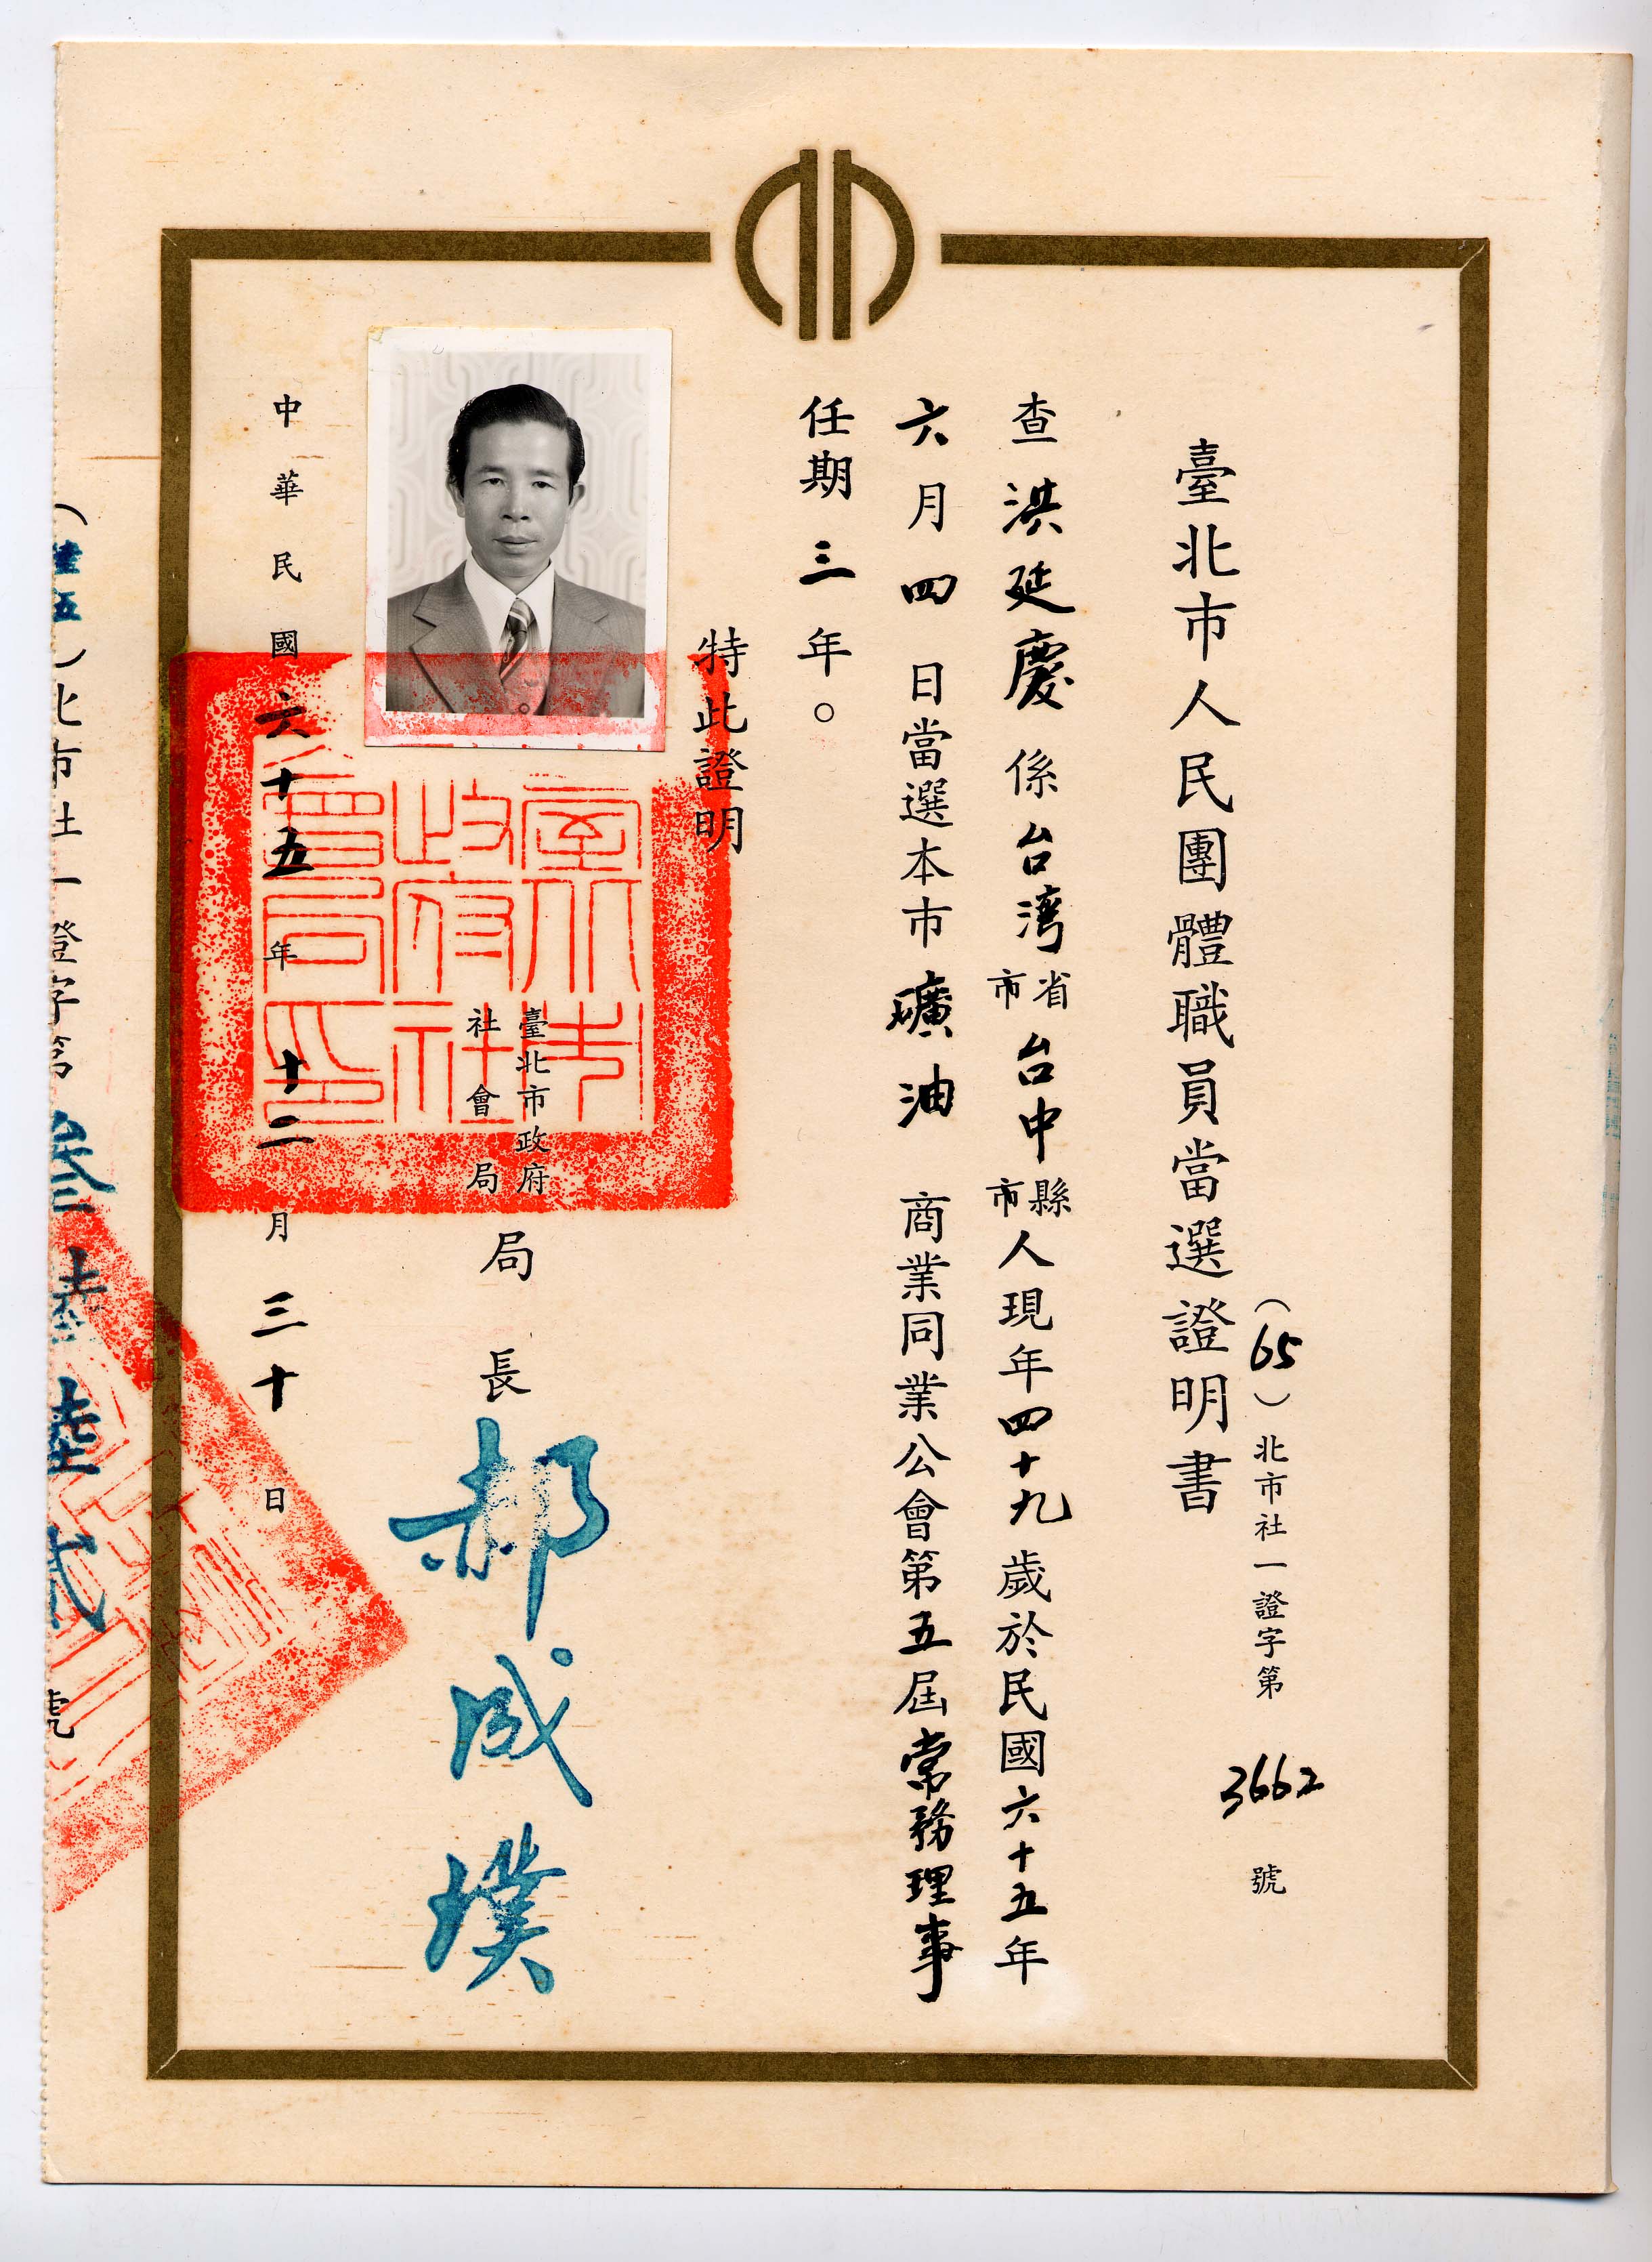 臺北市人民團體職員當選證明書
（65）北市社一證字第3662號
查洪延慶係台湾省市台中縣市人現年四十九歲於民國六十五年
六月四日當選本市礦油商業同業公會第五屆常務理事
任期三年。
特此證明
臺北市政府
社會局
局長郝成璞
中華民國六十五年十二月三十日
臺北市政府社會局印
（陸五）北市社一證字第叁陸陸貳號